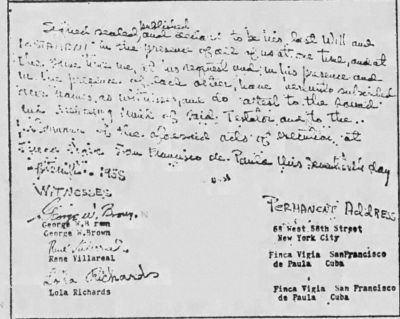 Signed sealed published and declared to be his last Will and
testament in the presence of all of us at one time, and at
the same time we, at his request and in his presence and
in the presence of each other, have hereunto subscribed
our names, as witnesses, and do attest to the sound
and disposing mind of said Testator and to the
performance of the aforesaid acts of execution at
Finca Vigia San Francisco de Paula this seventeenth day
1955
WITNESSES
PERMANENT ADDRESS
George W. Brown
George W.Brown
George W.Brown
65 West 58th Street
New York City
Rene Villareal
Rene Villareal
Finca Vigia SanFrancisco
de Paula Cuba
Lola Richards
Lola Richards
Finca Vigia San Francisco
de Paula Cuba